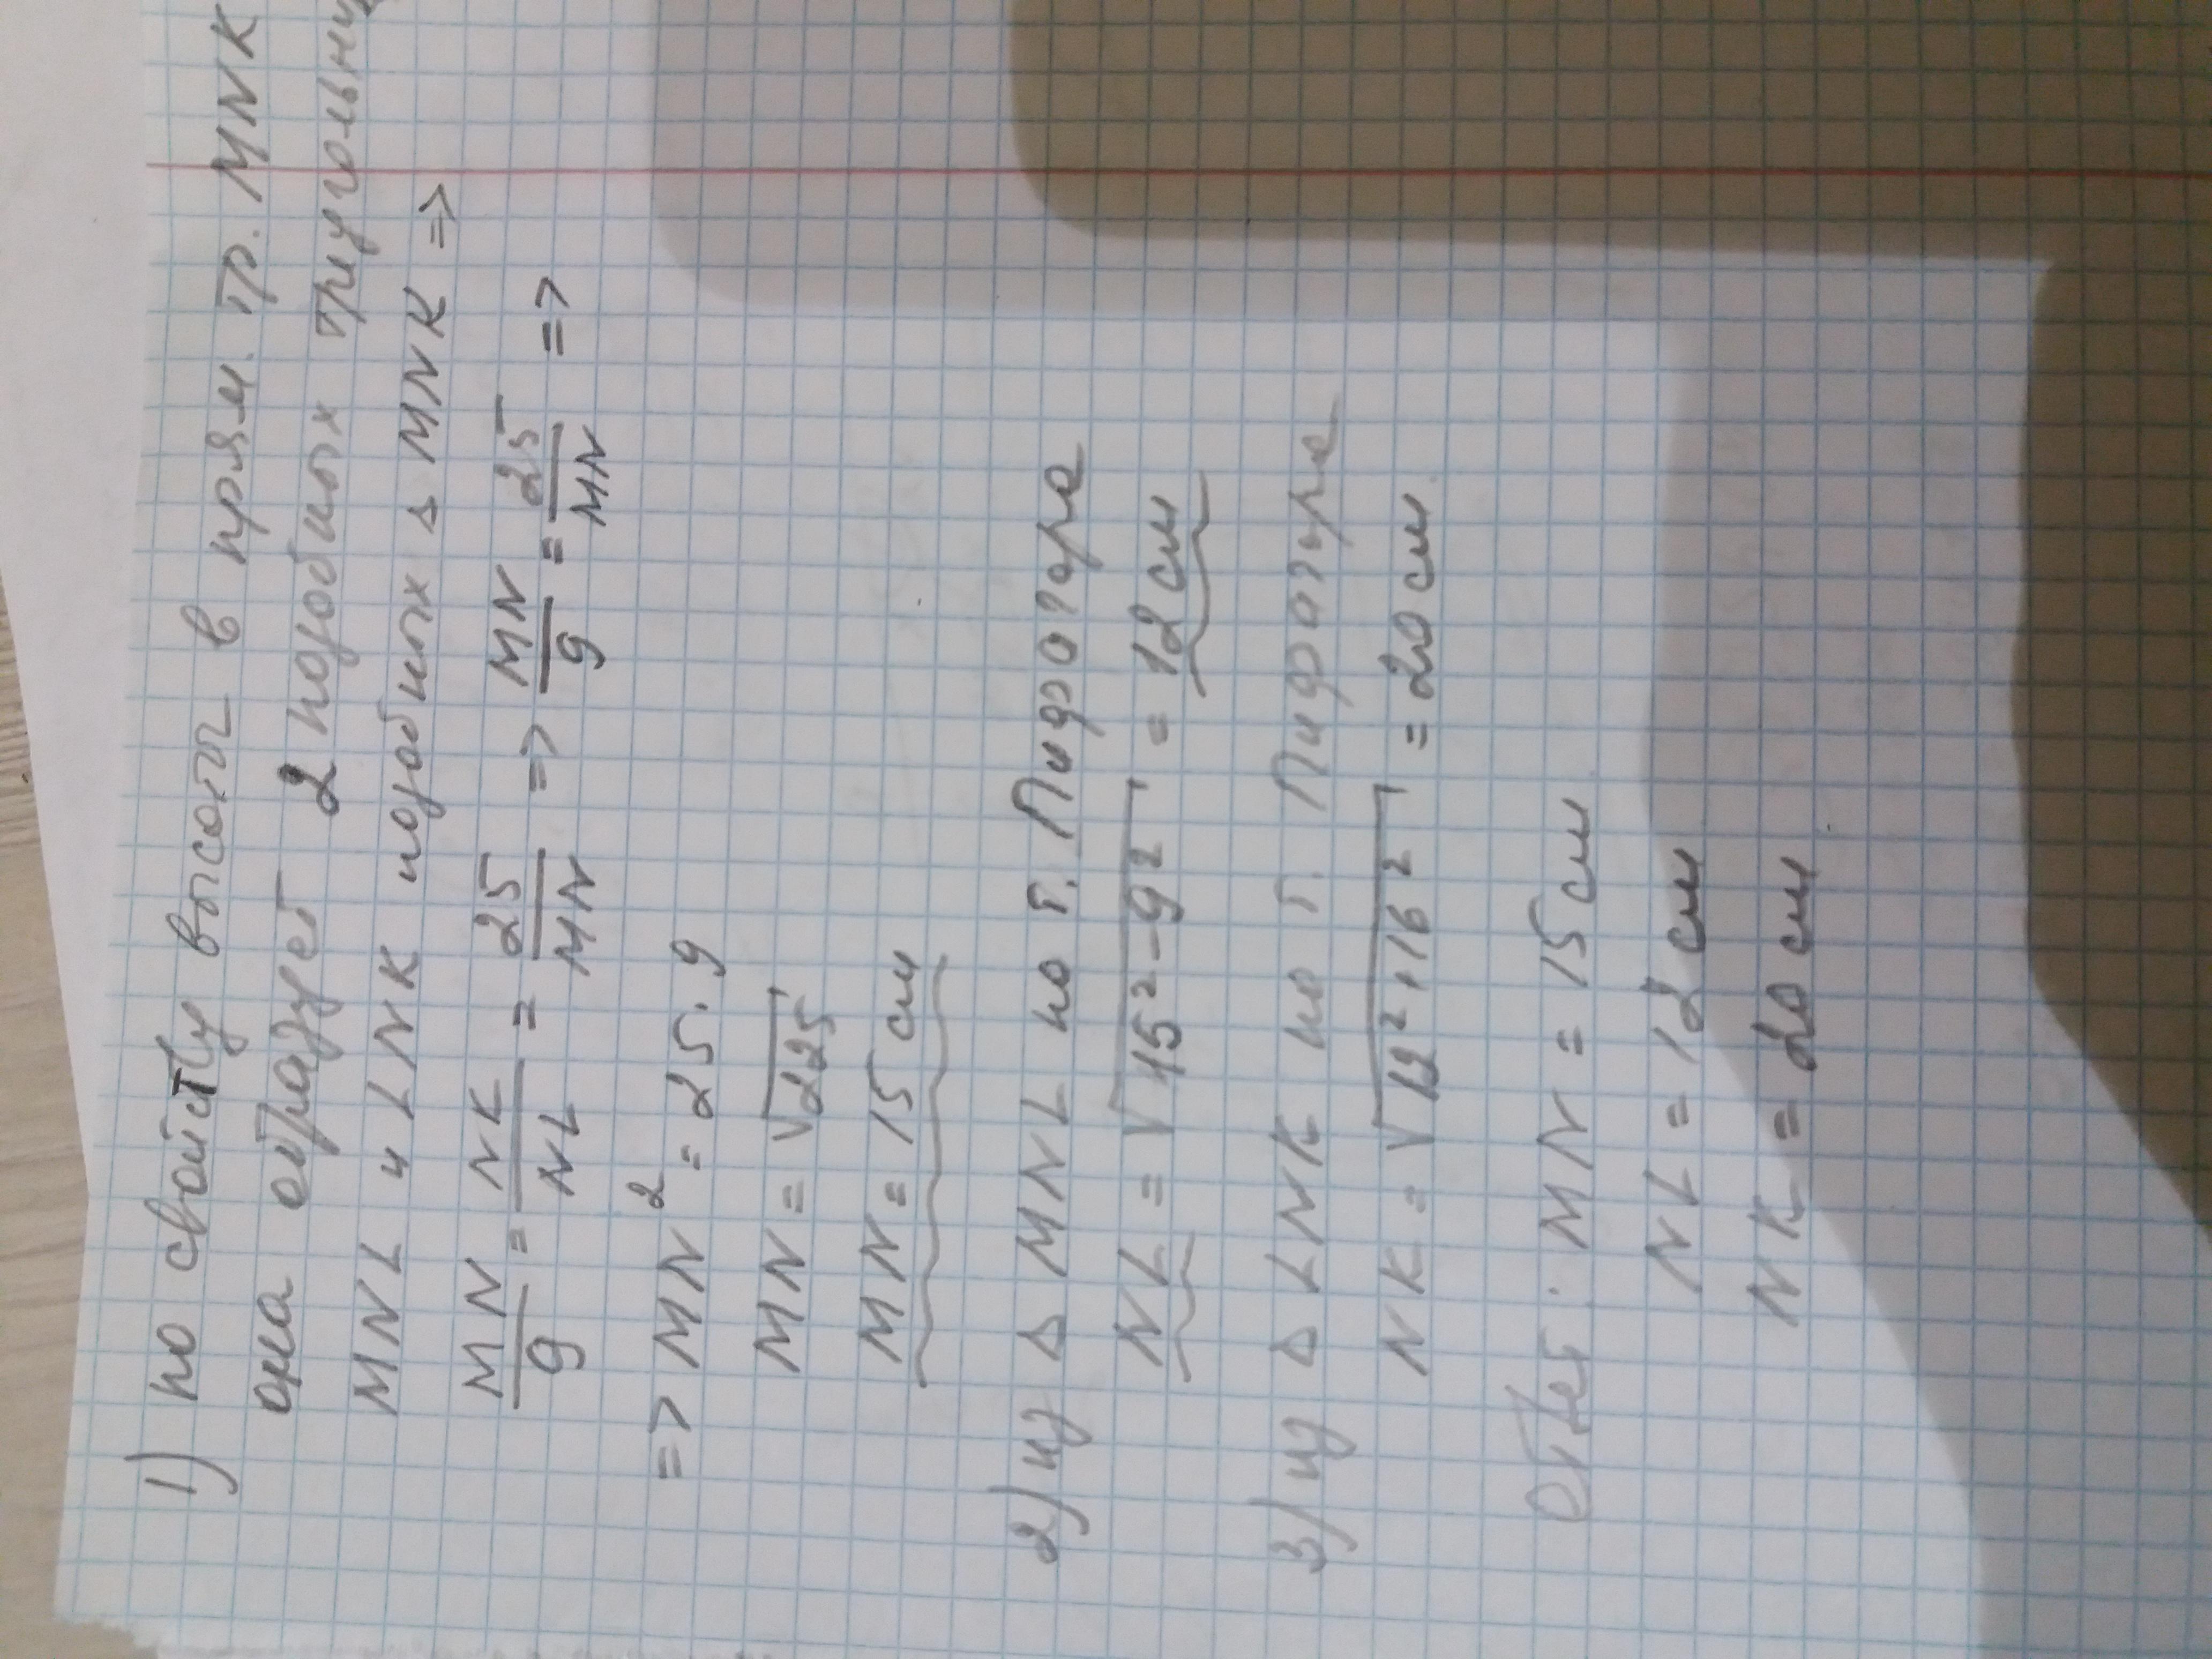 1) по свойству высоты в прям. тр. MNK
она образует 2 подобных треугольник
MNL и LNK подобных △ MNK =>
MN/9 = NK/NL = 25/MN => MN/9 = 25/MN =>
=> MN² = 25 · 9
MN = √225
MN = 15 см
2) из △ MNL по т. Пифагора
NL = √15² - 9² = 12 см
3) из △ LNK по т. Пифагора
NK = √12² + 16² = 20 см
Ответ: MN = 15 см
NL = 12 см
NK = 20 см